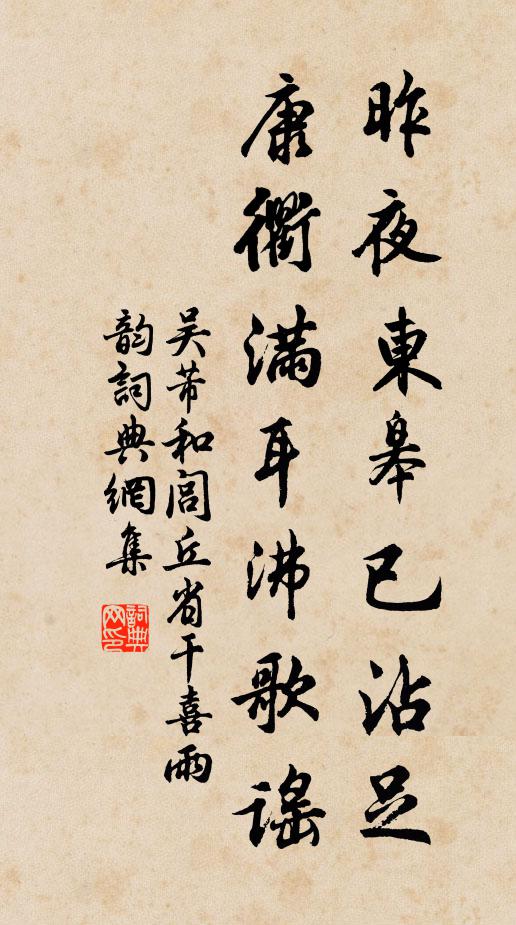 昨夜東皋已沾足
康衢滿耳沸歌謠
吴芾和閭丘省干喜雨
韵詞典網集
詞典网印